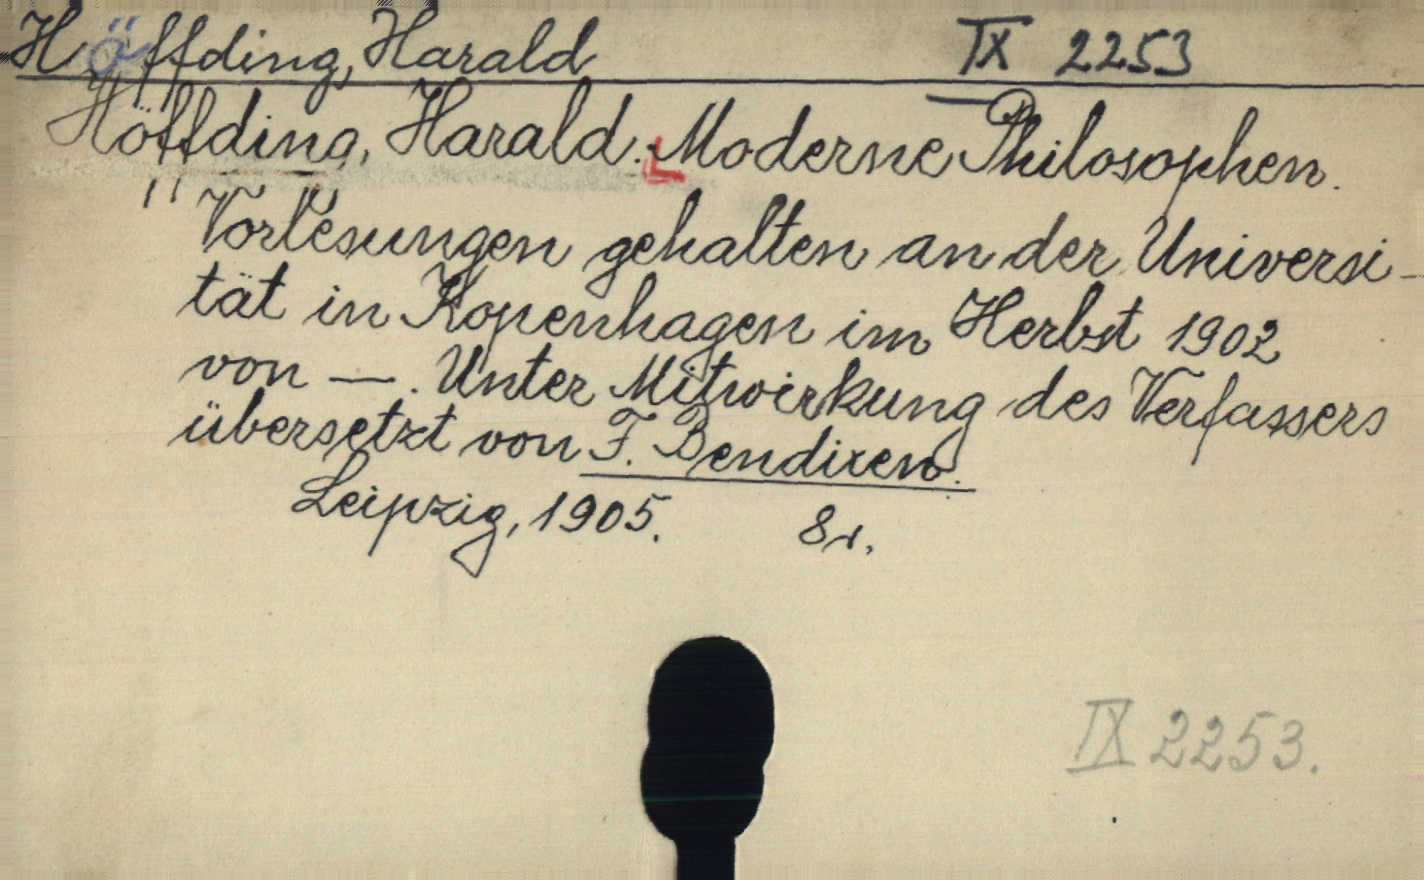 Höffding, Harald IX 2253
Höffding, Harald. Moderne Philosophen.
Vorlesungen gehalten an der Universi-
tät in Kopenhagen im Herbst 1902
von —. Unter Mitwirkung des Verfassers
übersetzt von F. Bendixen.
Leipzig, 1905. 8r.
IX 2253.